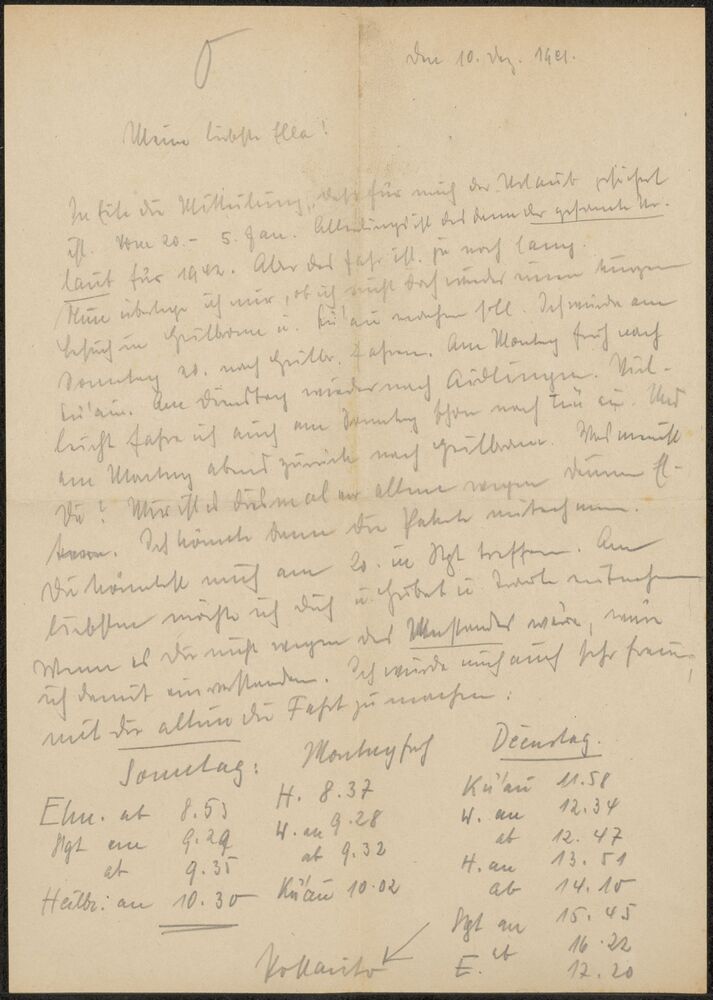 Den 10. Dez. 1941.
Meine liebste Ella!
In Eile die Mitteilung, daß für mich der Urlaub gesichert
ist. Vom 20. - 5. Jan. Allerdings ist das dann der gesamte Ur-
laub für 1942. Aber das Jahr ist ja noch lang.
Nun überlege ich mir, ob ich nicht doch wieder einen kurzen
Besuch in Heilbronn u. Kü'au machen soll. Ich würde am
Sonntag 20. nach Heilbr. fahren. Am Montag früh nach
Kü'au. Am Dienstag wieder nach Aidlingen. Viel-
leicht fahre ich auch am Sonntag schon nach Kü'au. Und
am Montag abend zurück nach Heilbronn. Was meinst
Du? Mir ist es diesmal vor allem wegen Deinen El-
tern. Ich könnte dann die Pakete mitnehmen.
Du könntest mich am 20. in Stgt treffen. Am
liebsten möchte ich Dich u. u. mitnehmen
Wenn es Dir nicht wegen des Umstandes wäre, wäre
ich damit einverstanden. Ich würde mich auch sehr freuen,
mit Dir allein die Fahrt zu machen:
Sonntag: Montag früh Dienstag.
Ehn. ab 8.53 H. 8.37 Kü'au 11.58
Stgt an 9.29 W. an 9.28 W. an 12.34
ab 9.35 ab 9.32 ab 12.47
Heilbr: an 10.30 Kü'au 10.02 H. an 13.51
ab 14.10
Stgt an 15.45
ab 16.22
E. 17.20